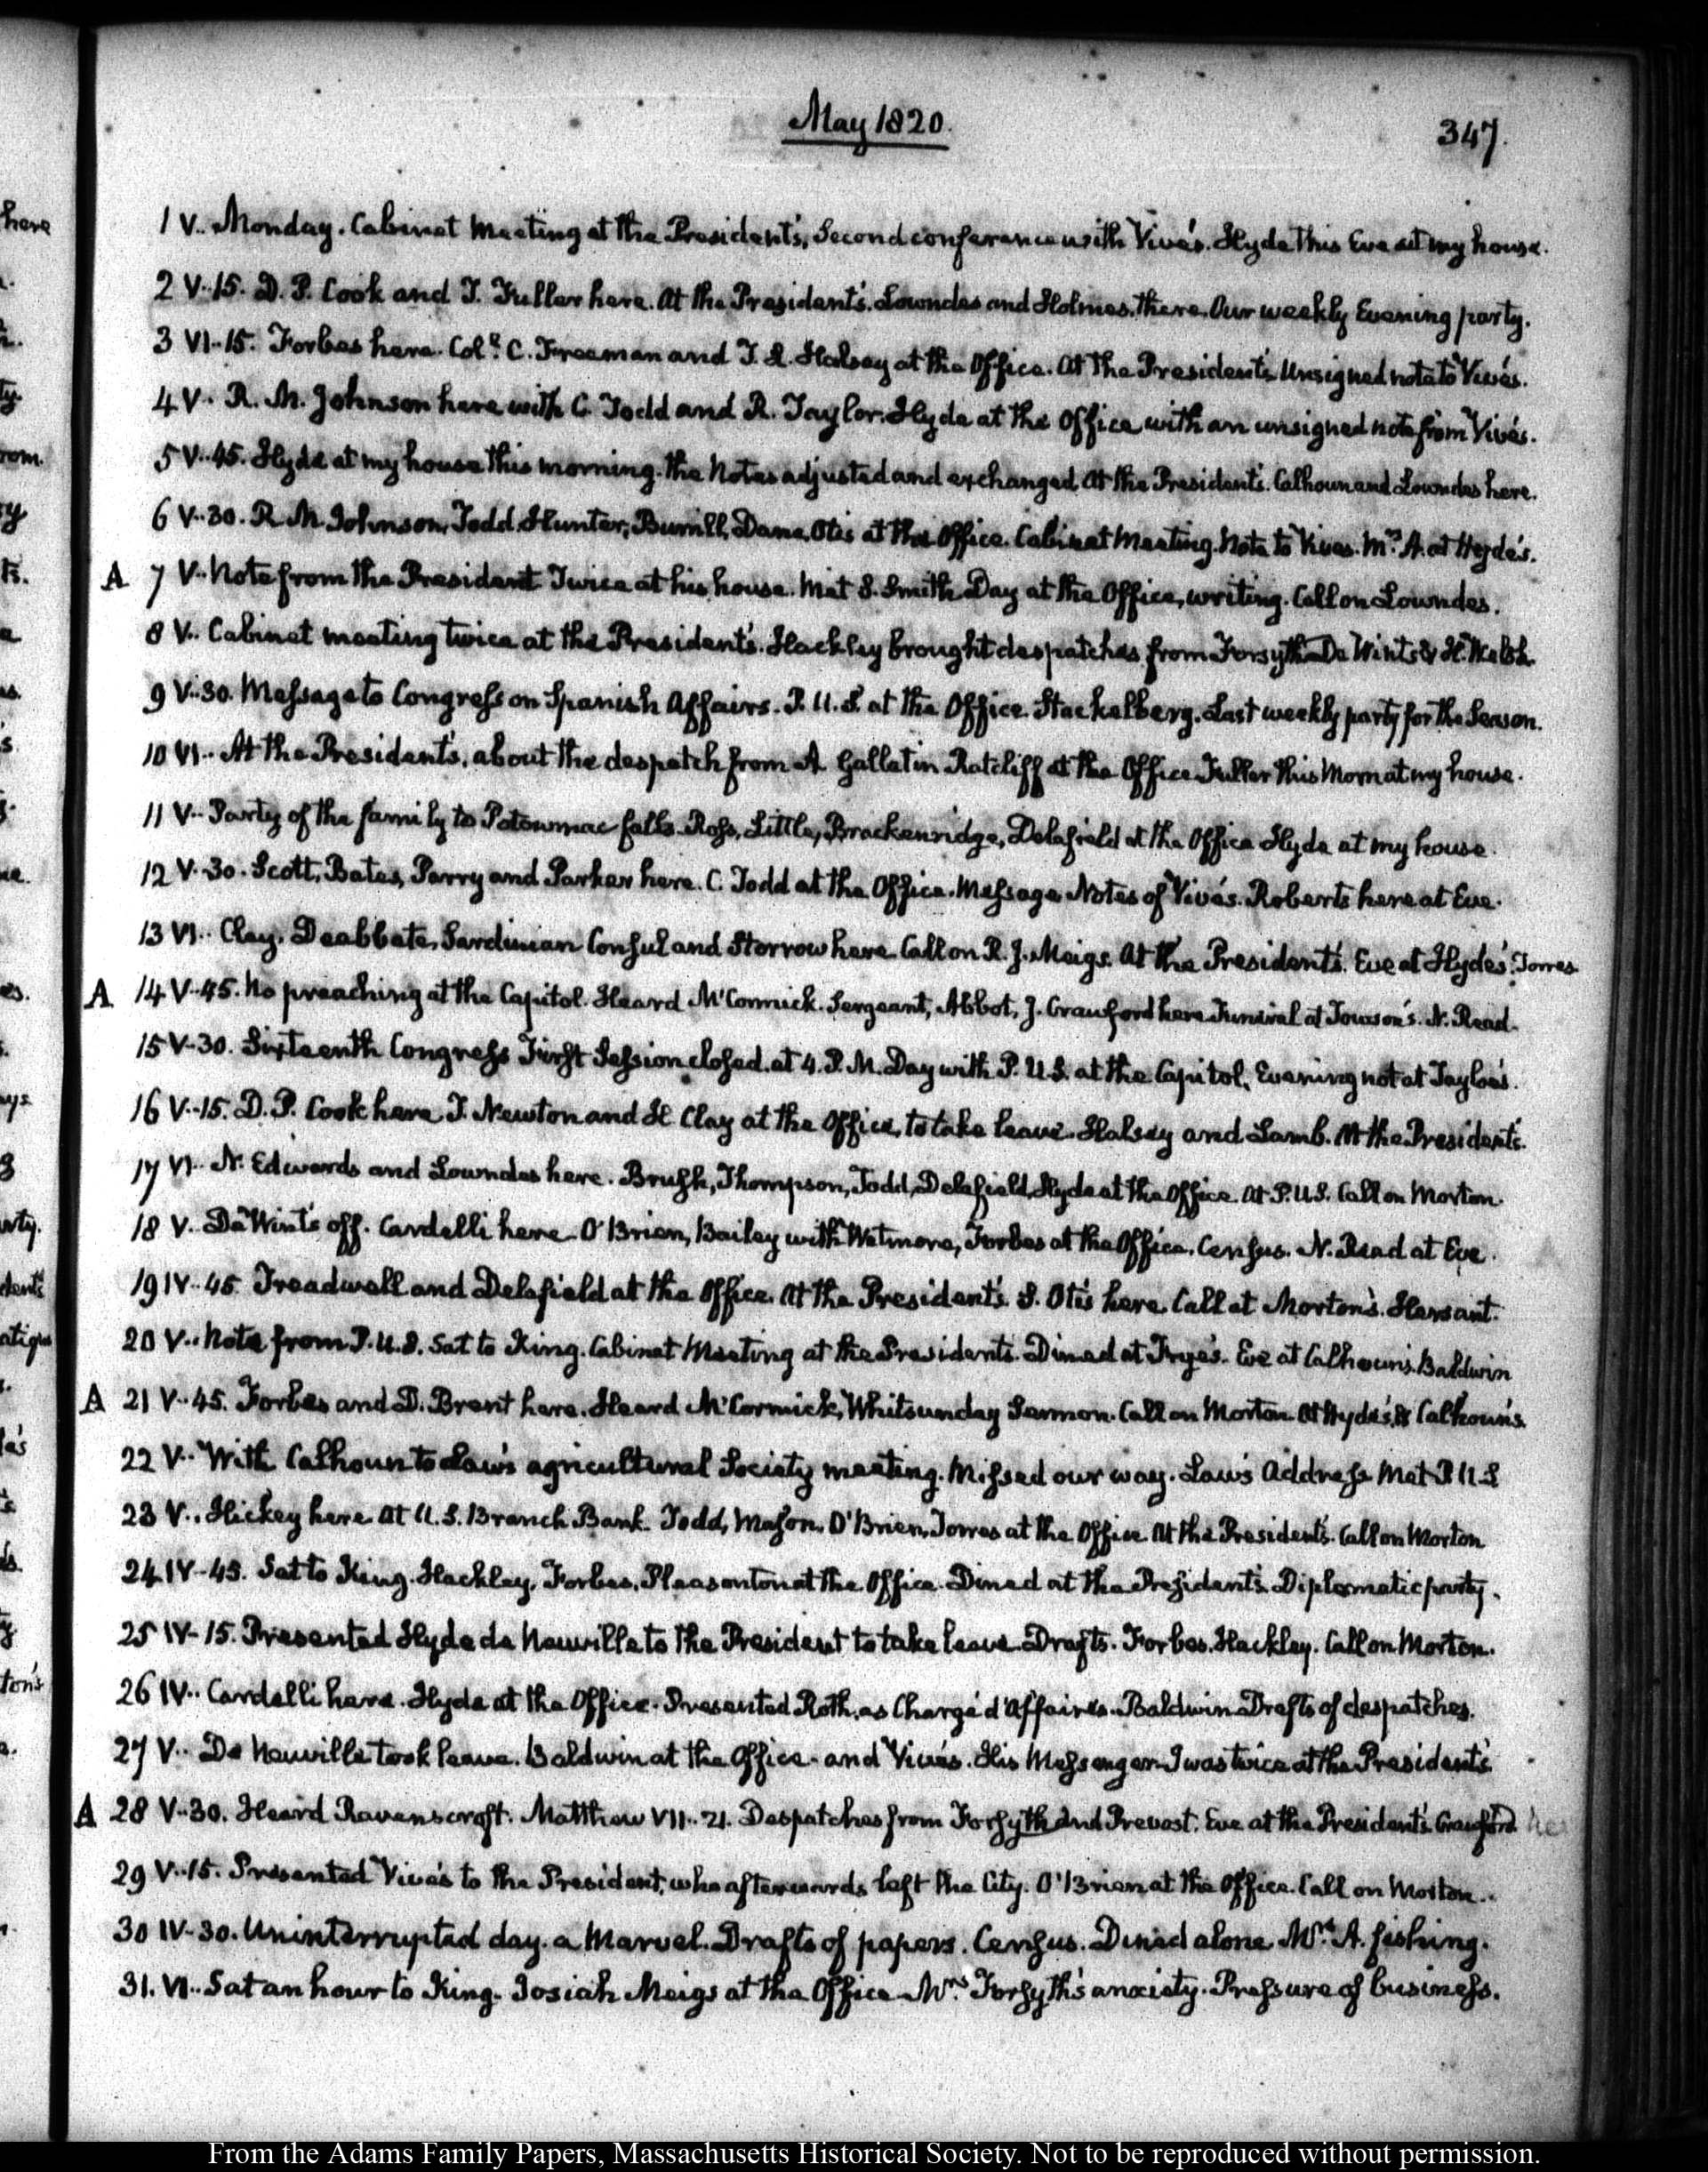 May 1820.
347.
1 V.. Monday. Cabinet Meeting at the President's, Second conference with Vivés. Hyde this Eve at my house.
2 V..15. D. P. Cook and T. Fuller here. At the President's. Lowndes and Holmes there. Our weekly Evening party.
3 VI..15. Forbes here. Coll. C. Freeman and T. L. Halsey at the Office. At the President's Unsigned note to Vivés.
4 V.. R. M. Johnson here with C. Todd and R. Taylor. Hyde at the Office with an unsigned note from Vivés.
5 V..45. Hyde at my house this morning. the Notes adjusted and exchanged. At the President's. Calhoun and Lowndes here.
6 V..30. R. M. Johnson, Todd, Hunter, Burrill, Dana, Otis at the Office. Cabinet Meeting. Note to Vives. Mrs. A. at Hyde's.
A 7 V.. Note from the President Twice at his house. Met S. Smith Day at the Office, writing. Call on Lowndes.
8 V.. Cabinet meeting twice at the President's. Hackley brought despatches from Forsyth De Wints & H. Welsh.
9 V..30. Message to Congress on Spanish Affairs. P. U. S. at the Office. Stackelberg. Last weekly party for the Season.
10 VI.. At the President's, about the despatch from A. Gallatin Ratcliff at the Office Fuller this Morn at my house.
11 V.. Party of the family to Potowmac falls. Ross, Little, Brackenridge, Delafield at the Office Hyde at my house.
12 V..30. Scott, Bates, Parry and Parker here. C. Todd at the Office. Message Notes of Vivés. Roberts here at Eve.
13 VI.. Clay, Deabbate, Sardinian Consul and Storrow here. Call on R. J. Meigs. At the President's. Eve at Hyde's. Torres
A 14 V..45. No preaching at the Capitol. Heard McCormick. Sergeant, Abbot, J. Crawford here Funeral at Towson's. N. Read.
15 V..30. Sixteenth Congress First Session closed. at 4. P. M. Day with P. U. S. at the Capitol, Evening not at Tayloe's.
16 V..15. D. P. Cook here. T. Newton and H. Clay at the Office, to take leave. Halsey and Lamb. At the President's.
17 VI.. N. Edwards and Lowndes here. Brush, Thompson, Todd, Delafield, Hyde at the Office. At P. U. S. Call on Morton.
18 V.. De Wint's off. Cardelli here. O'Brien, Bailey with Wetmore, Forbes at the Office. Census. N. Read at Eve.
19 IV..45. Treadwell and Delafield at the Office. At the President's. S. Otis here. Call at Morton's. Hersant.
20 V.. Note from P. U. S. Sat to King. Cabinet Meeting at the President's. Dined at Frye's. Eve at Calhoun's. Baldwin
A 21 V..45. Forbes and D. Brent here. Heard McCormick, Whitsunday Sermon. Call on Morton. At Hyde's, & Calhoun's.
22 V.. With Calhoun to Law's agricultural Society meeting. Missed our way. Law's Address Met P. U. S
23 V.. Hickey here. At U. S. Branch Bank. Todd, Mason, O'Brien, Torres at the Office At the President's. Call on Morton
24 IV..45. Sat to King. Hackley, Forbes, Pleasonton at the Office. Dined at the President's. Diplomatic party.
25 IV..15. Presented Hyde de Neuville to the President to take leave. Drafts. Forbes. Hackley. Call on Morton.
26 IV.. Cardelli here. Hyde at the Office. Presented Roth, as Chargé d'Affaires. Baldwin Drafts of despatches.
27 V.. De Neuville took leave. Baldwin at the Office. and Vivés. His Messenger. I was twice at the President's
A 28 V..30. Heard Ravenscroft. Matthew VII..21. Despatches from Forsyth and Prevost. Eve at the President's. Crawford
29 V..15. Presented Vivés to the President, who afterwards left the City. O'Brien at the Office. Call on Morton..
30 IV..30. Uninterrupted day. a Marvel. Drafts of papers. Census. Dined alone Mrs. A. fishing.
31. VI.. Sat an hour to King. Josiah Meigs at the Office Mrs. Forsyth's anxiety. Pressure of business.
From the Adams Family Papers, Massachusetts Historical Society. Not to be reproduced without permission.